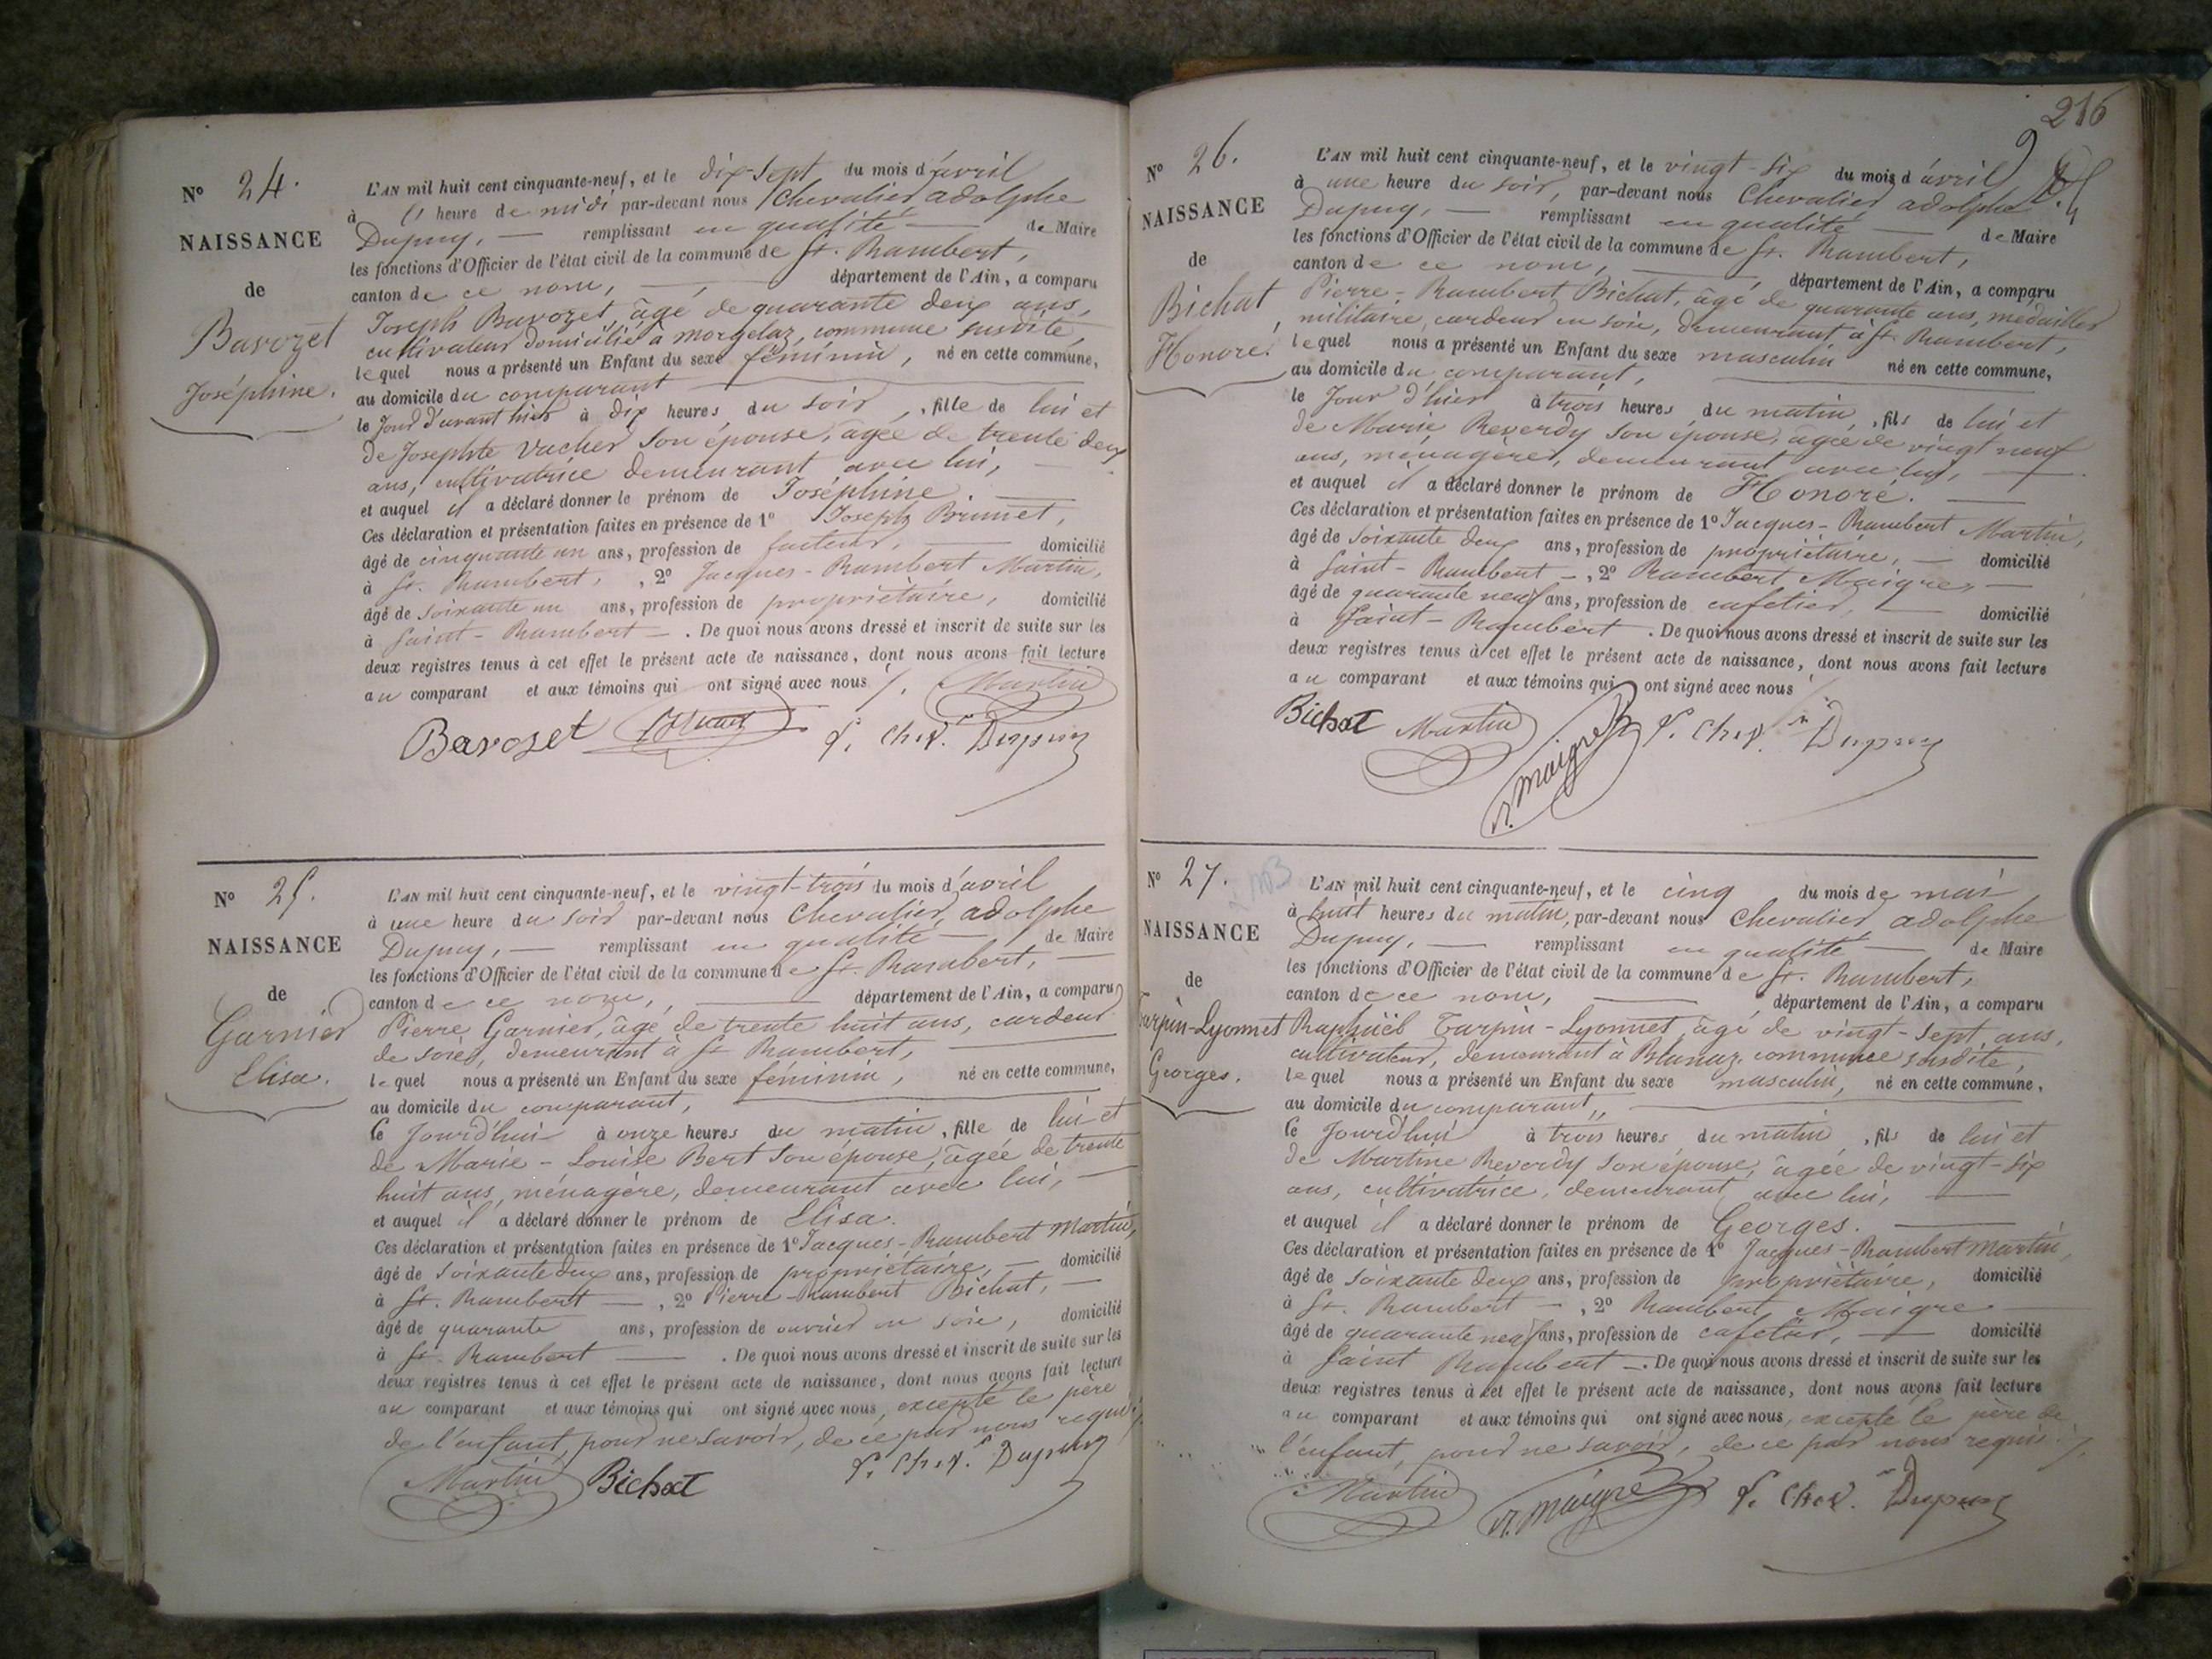 Nº 24.
NAISSANCE
de
Bavozet
Joséphine.
L'AN mil huit cent cinquante-neuf, et le dix-sept du mois d'avril
à l' heure de midi par-devant nous Chevalier adolphe
Dupuy, — remplissant en qualité — de Maire
les fonctions d'Officier de l'état civil de la commune de St. Rambert,
canton de ce nom, — département de l'Ain, a comparu
Joseph Bavozet, âgé de quarante deux ans,
cultivateur domicilié à morgelaz, commune susdite,
lequel nous a présenté un Enfant du sexe féminin, né en cette commune,
au domicile du comparant
le Jour d'avant hier à dix heures du soir, fille de lui et
de Josephte Vacher son épouse, âgée de trente deux
ans, cultivatrice demeurant avec lui, —
et auquel il a déclaré donner le prénom de Joséphine. —
Ces déclaration et présentation faites en présence de 1º Joseph Brunet,
âgé de cinquante un ans, profession de facteur, — domicilié
à St. Rambert, , 2º Jacques-Rambert Martin,
âgé de soixante un ans, profession de propriétaire, domicilié
à Saint-Rambert —. De quoi nous avons dressé et inscrit de suite sur les
deux registres tenus à cet effet le présent acte de naissance, dont nous avons fait lecture
au comparant et aux témoins qui ont signé avec nous /. Martin
Bavozet Brunet Chev. Dupuy
Nº 25.
NAISSANCE
de
Garnier
Elisa.
L'AN mil huit cent cinquante-neuf, et le vingt-trois du mois d'avril
à une heure du soir par-devant nous Chevalier, adolphe
Dupuy, — remplissant en qualité — de Maire
les fonctions d'Officier de l'état civil de la commune de St. Rambert, —
canton de ce nom, — département de l'Ain, a comparu
Pierre Garnier, âgé de trente huit ans, cardeur
de soies, demeurant à St Rambert, —
lequel nous a présenté un Enfant du sexe féminin, né en cette commune,
au domicile du comparant, —
Ce Jourd'hui à onze heures du matin, fille de lui et
de Marie-Louise Bert son épouse, âgée de trente
huit ans, ménagère, demeurant avec lui, —
et auquel il a déclaré donner le prénom de Elisa.
Ces déclaration et présentation faites en présence de 1º Jacques-Rambert Martin,
âgé de soixante deux ans, profession de propriétaire, — domicilié
à St. Rambert —, 2º Pierre-Rambert Bichat, —
âgé de quarante ans, profession de ouvrier en soie, domicilié
à St. Rambert —. De quoi nous avons dressé et inscrit de suite sur les
deux registres tenus à cet effet le présent acte de naissance, dont nous avons fait lecture
au comparant et aux témoins qui ont signé avec nous, excepté le père
de l'enfant, pour ne savoir, de ce par nous requis /.
Martin Bichat Chev. Dupuy
216
Nº 26.
NAISSANCE
de
Bichat
Honoré.
L'AN mil huit cent cinquante-neuf, et le vingt-six du mois d'avril
à une heure du soir, par-devant nous Chevalier adolphe
Dupuy, — remplissant en qualité — de Maire
les fonctions d'Officier de l'état civil de la commune de St. Rambert,
canton de ce nom, — département de l'Ain, a comparu
Pierre-Rambert Bichat, âgé de quarante ans, médaillé
militaire, cardeur en soie, demeurant à St Rambert,
lequel nous a présenté un Enfant du sexe masculin né en cette commune,
au domicile du comparant, —
le Jour d'hier à trois heures du matin, fils de lui et
de Marie Reverdy son épouse, âgée de vingt neuf
ans, ménagère, demeurant avec lui, —
et auquel il a déclaré donner le prénom de Honoré. —
Ces déclaration et présentation faites en présence de 1º Jacques-Rambert Martin,
âgé de soixante deux ans, profession de propriétaire, — domicilié
à Saint-Rambert —, 2º Rambert Maigre, —
âgé de quarante neuf ans, profession de cafetier, — domicilié
à Saint-Rambert. De quoi nous avons dressé et inscrit de suite sur les
deux registres tenus à cet effet le présent acte de naissance, dont nous avons fait lecture
au comparant et aux témoins qui ont signé avec nous
Bichat Martin R. Maigre Chev. Dupuy
Nº 27.
NAISSANCE
de
Turpin-Lyonnet
Georges.
L'AN mil huit cent cinquante-neuf, et le cinq du mois de mai
à huit heures du matin, par-devant nous Chevalier adolphe
Dupuy, — remplissant en qualité — de Maire
les fonctions d'Officier de l'état civil de la commune de St. Rambert,
canton de ce nom, — département de l'Ain, a comparu
Raphaël Turpin-Lyonnet, âgé de vingt-sept ans,
cultivateur, demeurant à Blanaz, commune susdite,
lequel nous a présenté un Enfant du sexe masculin, né en cette commune,
au domicile du comparant, —
Ce Jourd'hui à trois heures du matin, fils de lui et
de Martine Reverdy son épouse, âgée de vingt-six
ans, cultivatrice, demeurant avec lui, —
et auquel il a déclaré donner le prénom de Georges. —
Ces déclaration et présentation faites en présence de 1º Jacques-Rambert Martin,
âgé de soixante deux ans, profession de propriétaire, domicilié
à St. Rambert —, 2º Rambert Maigre
âgé de quarante neuf ans, profession de cafetier, — domicilié
à Saint Rambert —. De quoi nous avons dressé et inscrit de suite sur les
deux registres tenus à cet effet le présent acte de naissance, dont nous avons fait lecture
au comparant et aux témoins qui ont signé avec nous, excepté le père de
l'enfant, pour ne savoir, de ce par nous requis /.
Martin R. Maigre Chev. Dupuy